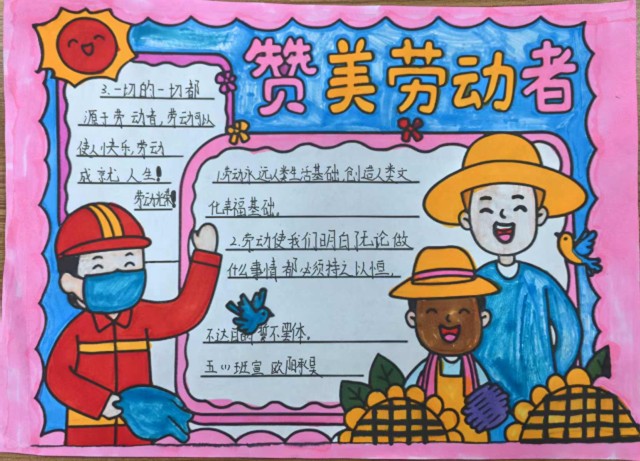 赞美劳动者
3.一切的一切都
源于劳动者,劳动可以
使人快乐,劳动
成就人生!
劳动光荣!
1.劳动永远人类生活基础,创造人类文
化幸福基础。
2.劳动使我们明白了无论做
什么事情都必须持之以恒,
不达目的誓不罢休。
五(1)班宣 欧阳